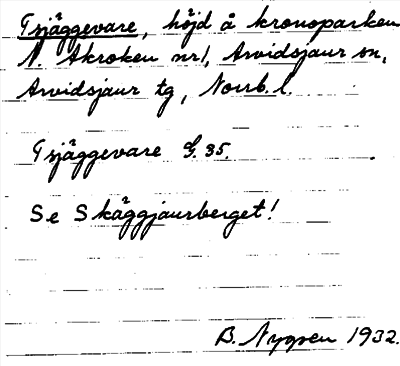 Tjäggevare, höjd å kronoparken
N. Akroken nr1, Arvidsjaur sn,
Arvidsjaur tg, Norrb. l.
Tjäggevare G. 35.
Se Skäggjaurberget!
B. Nygren 1932.